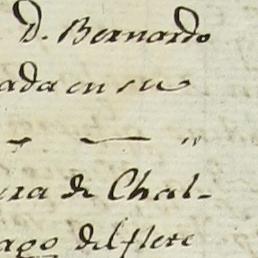 D. Bernardo
ada en su
— — "
era de Chal-
ago del flete